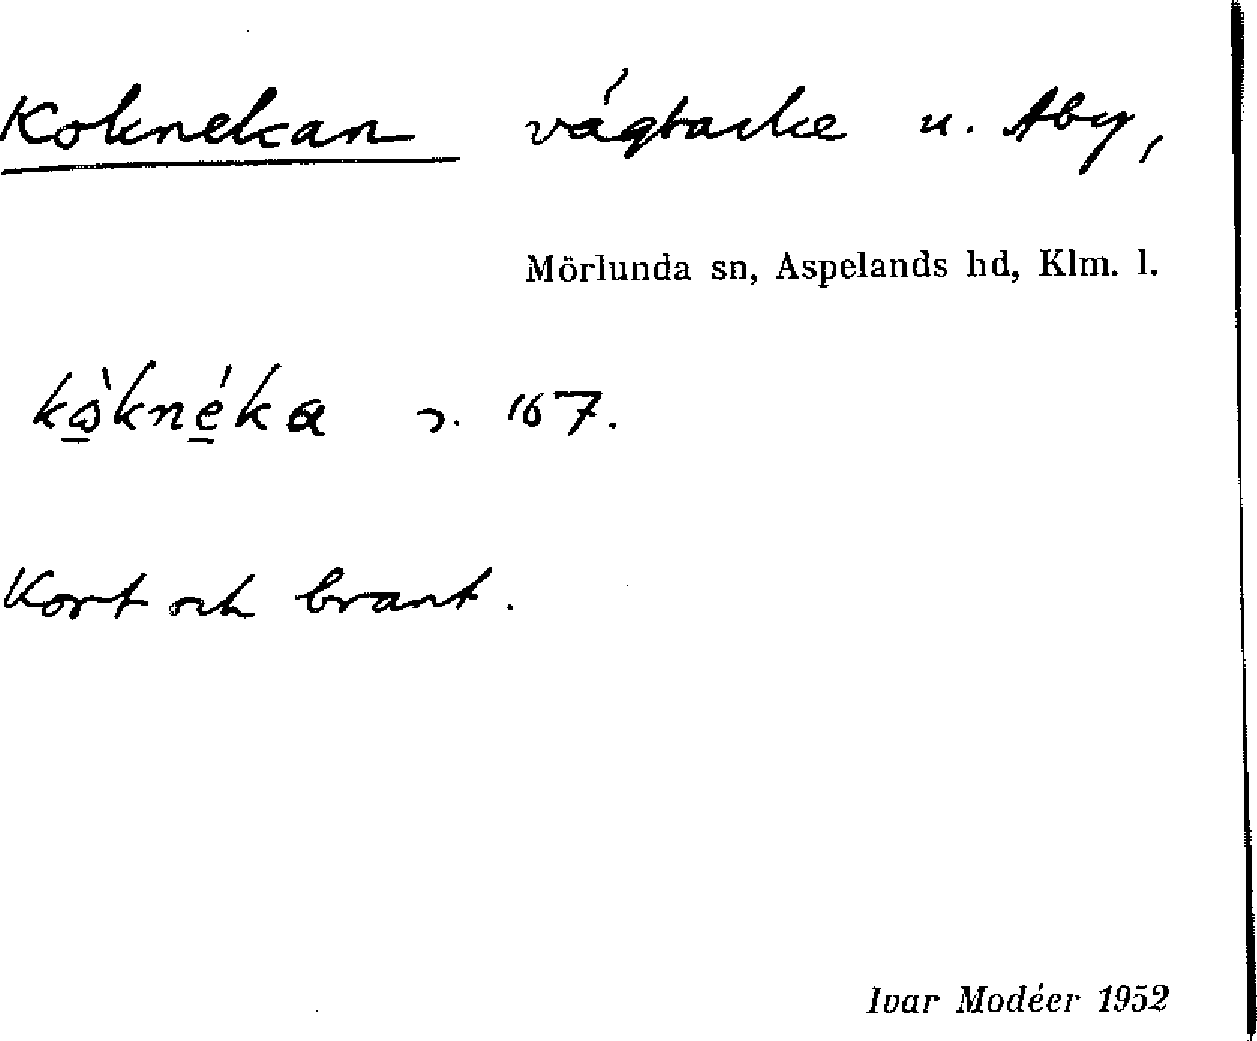 Koknekan vägbacke u. Åby,
Mörlunda sn, Aspelands hd, Klm. l.
kòknéka s. 167.
Kort och brant.
Ivar Modéer 1952